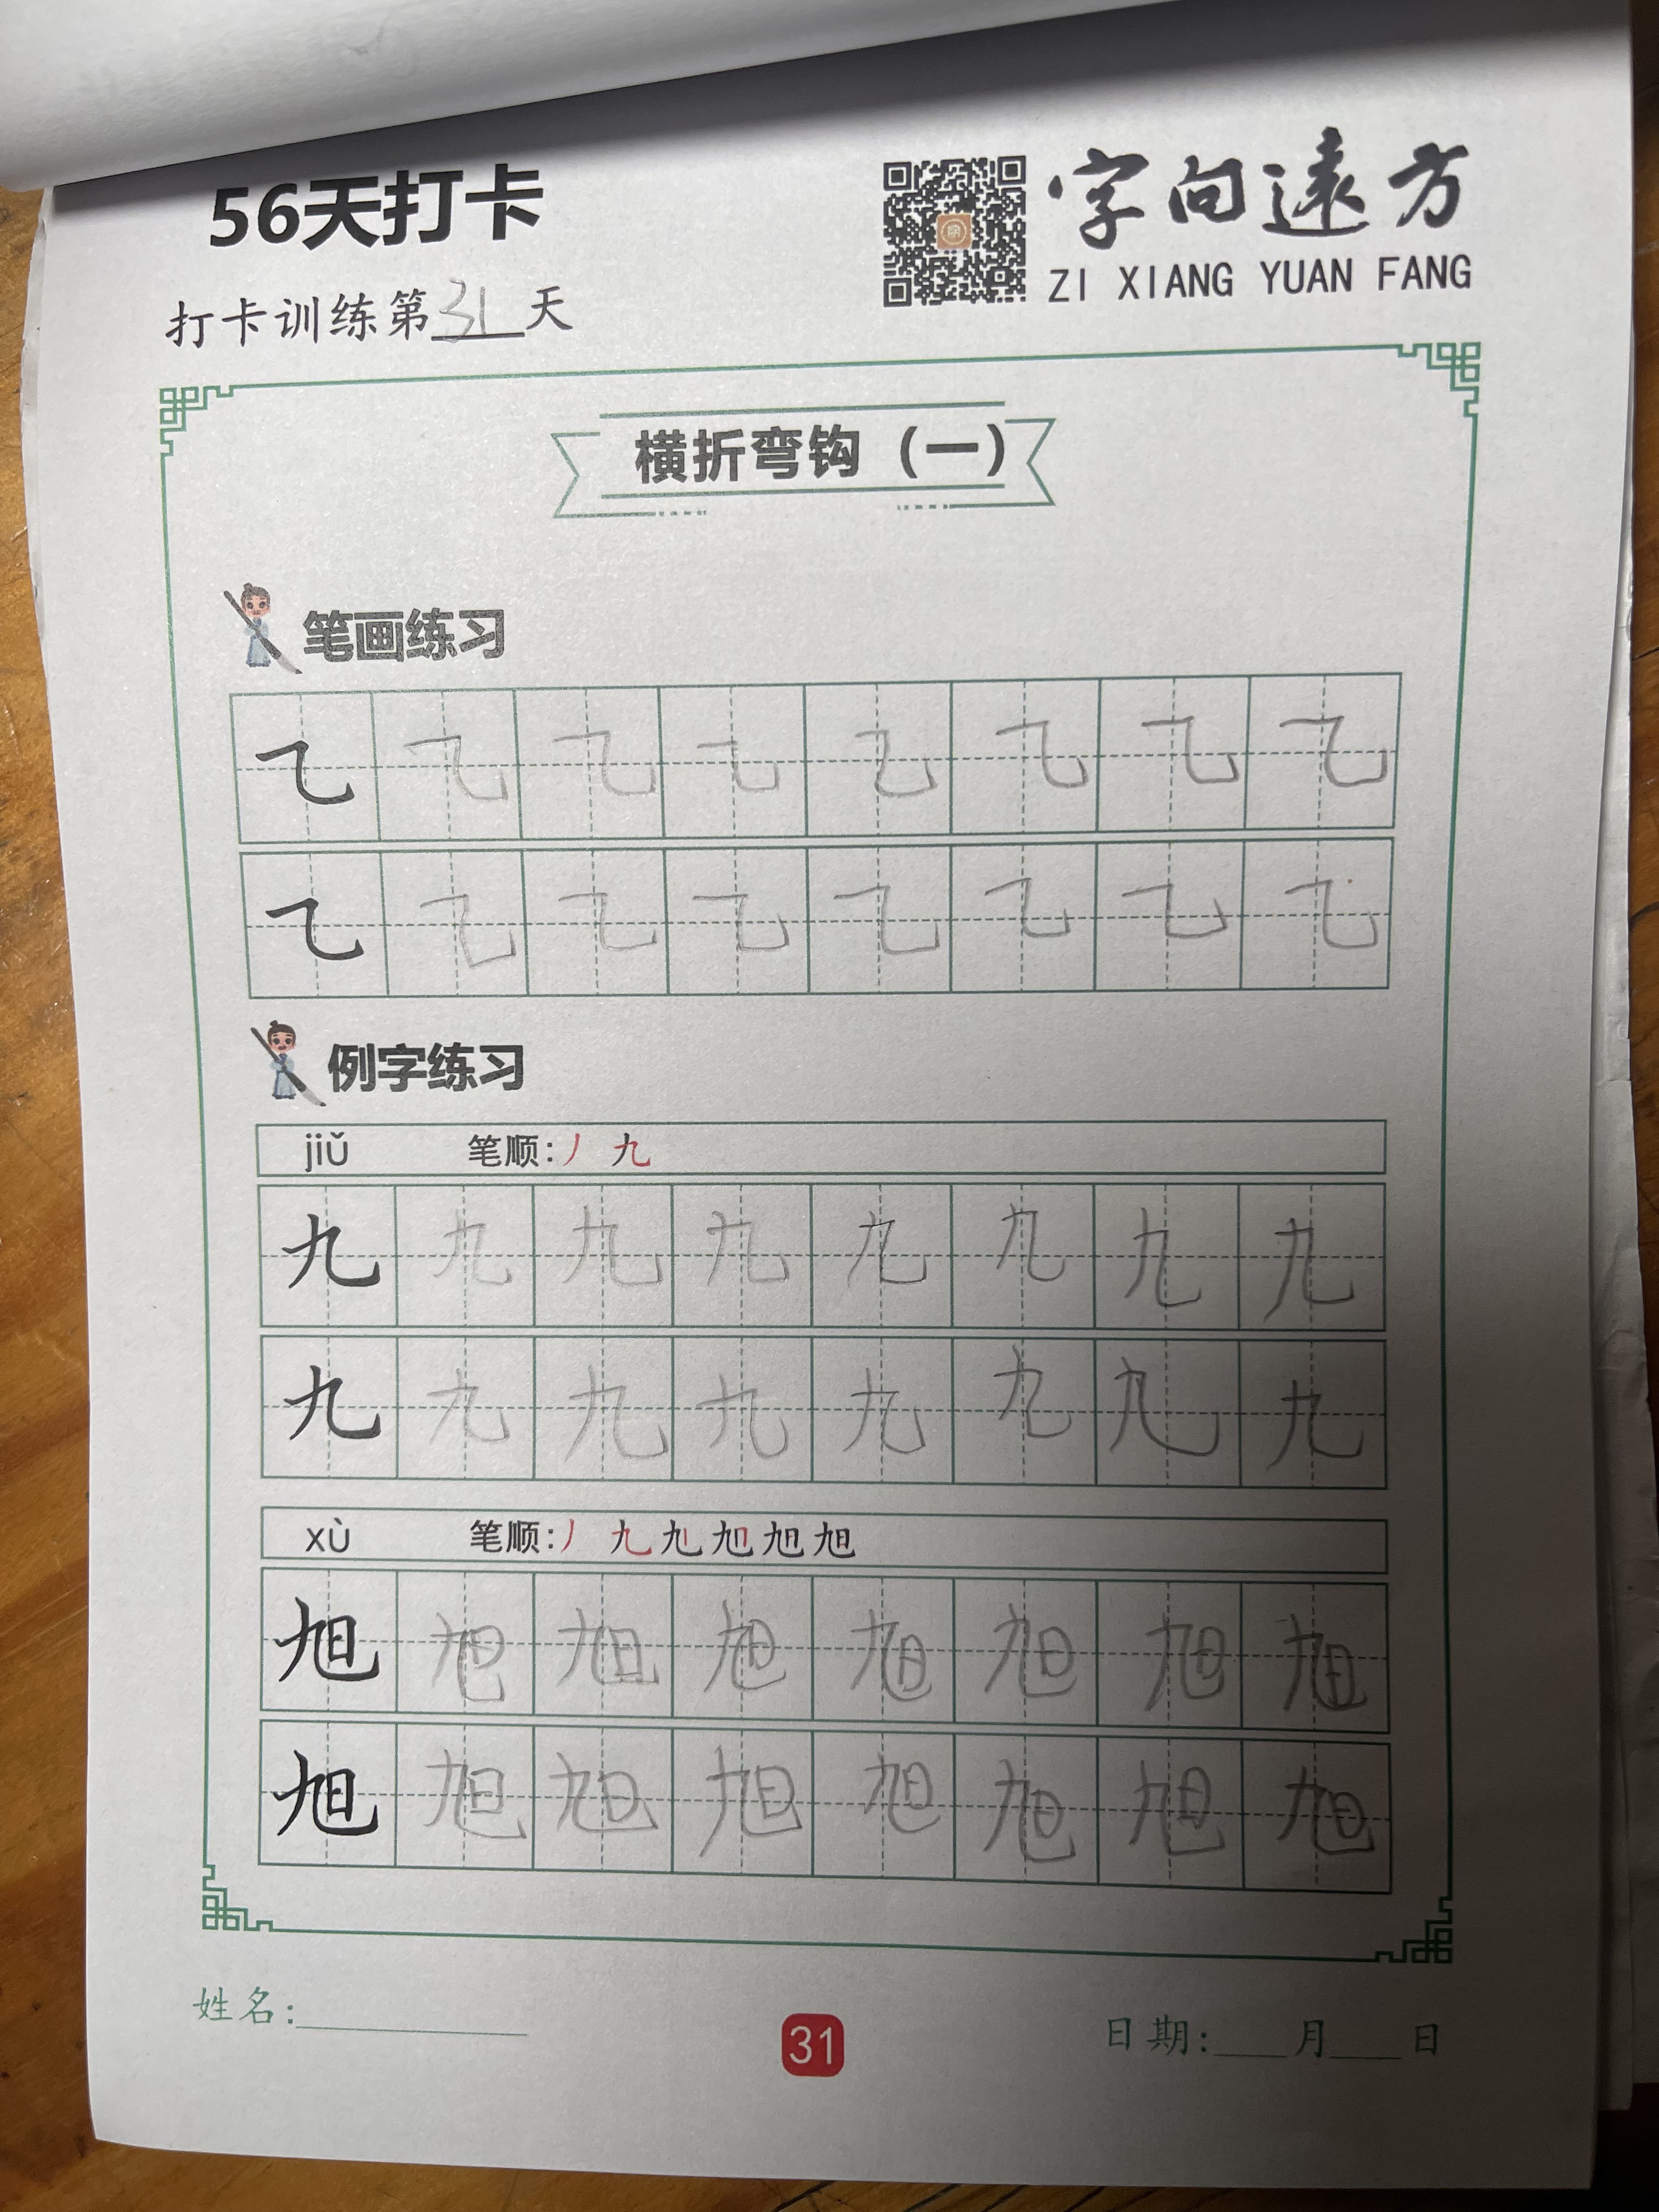 56天打卡
字向遠方
ZI XIANG YUAN FANG
打卡训练第31天
横折弯钩（一）
笔画练习
㇈ ㇈ ㇈ ㇈ ㇈ ㇈ ㇈ ㇈
㇈ ㇈ ㇈ ㇈ ㇈ ㇈ ㇈ ㇈
例字练习
jiǔ 笔顺：丿 九
九 九 九 九 九 九 九 九
九 九 九 九 九 九 九 九
xù 笔顺：丿 九 旭 旭
旭 旭 旭 旭 旭 旭 旭 旭
旭 旭 旭 旭 旭 旭 旭 旭
姓名：
31
日期：___月___日